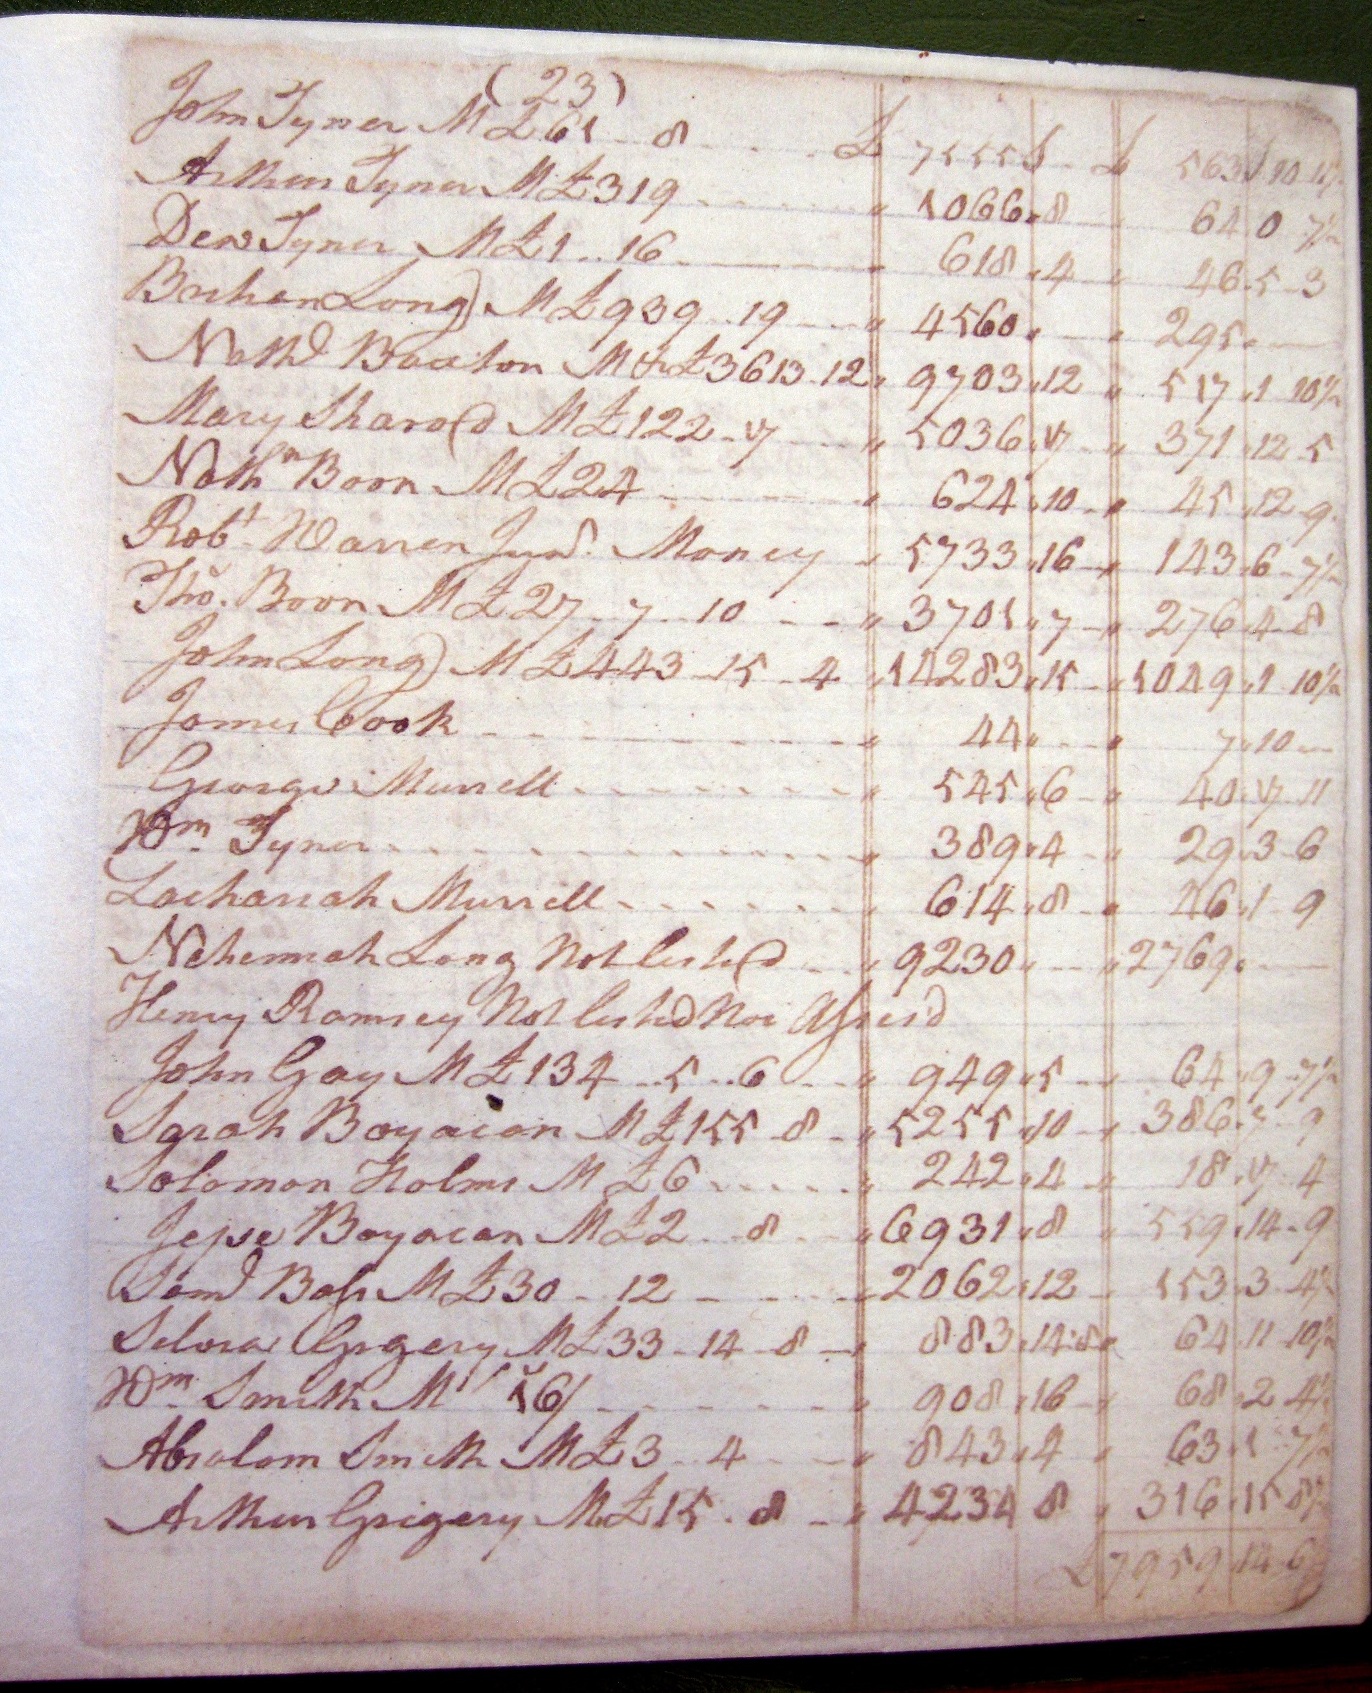 (23)
John Tyner M £61 - 8 £ 7555 £ 563 10
Arthur Tyner M £319 1066 8 64 0 7½
Dew Tyner M £1 .. 16 618 4 46 5 3
Long M £939 .. 19 4560 295
Nathl M £3613 . 12 9703 12 517 1 10½
Mary Sharod M £122 - 7 5036 7 371 12 5
Nathn Boon M £24 624 10 45 12 9
Robt Warren Junr. Money 5733 16 143 6 7½
Tho. Boon M £27 - 7 - 10 3701 7 276 4 8
John Long M £443 - 15 - 4 14283 15 1049 1 10½
James Cook 44 7 10
George Murrell 545 6 40 17 11
Wm Tyner 389 4 29 3 6
Zachariah Murrell 614 8 46 1 9
Nehemiah Long Not listed 9230 2769
Henry Ramsey Not listed Nor Assesd
John Gay M £134 .. 5 .. 6 949 5 64 9 7½
Sarah Boyacan M £155 - 8 5255 10 386 7 9
Solomon Holms M £6 242 4 18 7 4
Jesse Boyacan M £2 . 8 6931 8 559 14 9
Saml Bass M £30 - 12 2062 12 153 3 4½
Grgery M £33 - 14 - 8 883 14 8 64 11 10½
Wm Smith M 16/ 908 16 68 2 4½
Absalom Smith M £3 .. 4 843 4 63 1 7½
Arthur Grigery M £15 . 8 4234 8 316 15 8½
£7959 14 6